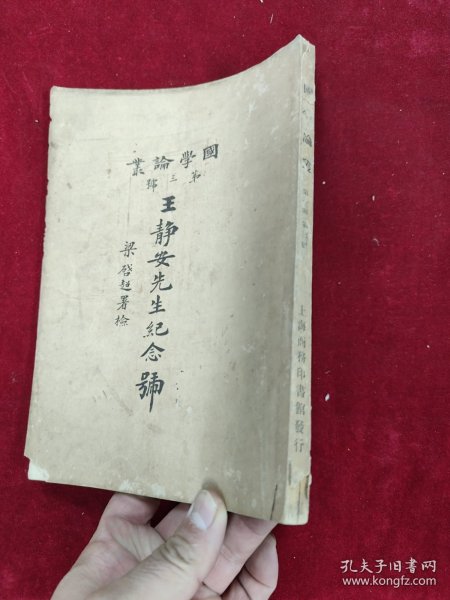 國學論叢
第三號
王靜安先生紀念號
梁啓超署檢
國學論叢
上海商務印書館發行
孔夫子旧书网
www.kongfz.com